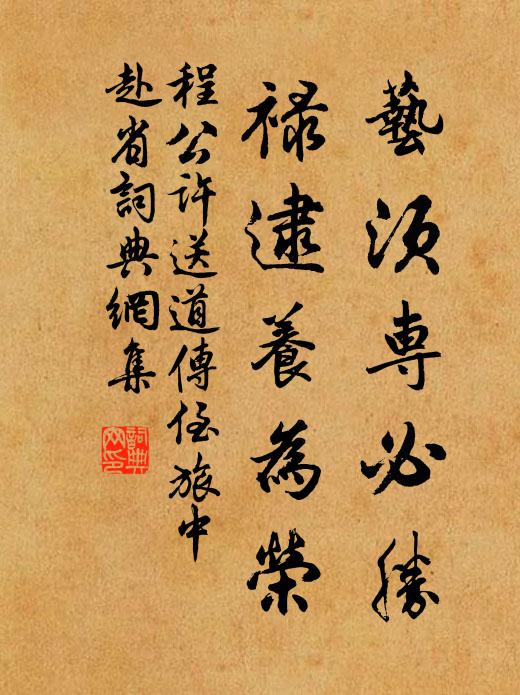 藝須専必勝
祿逮養為榮
程公許送道傳侄旅中
赴省詞典網集
詞典網印